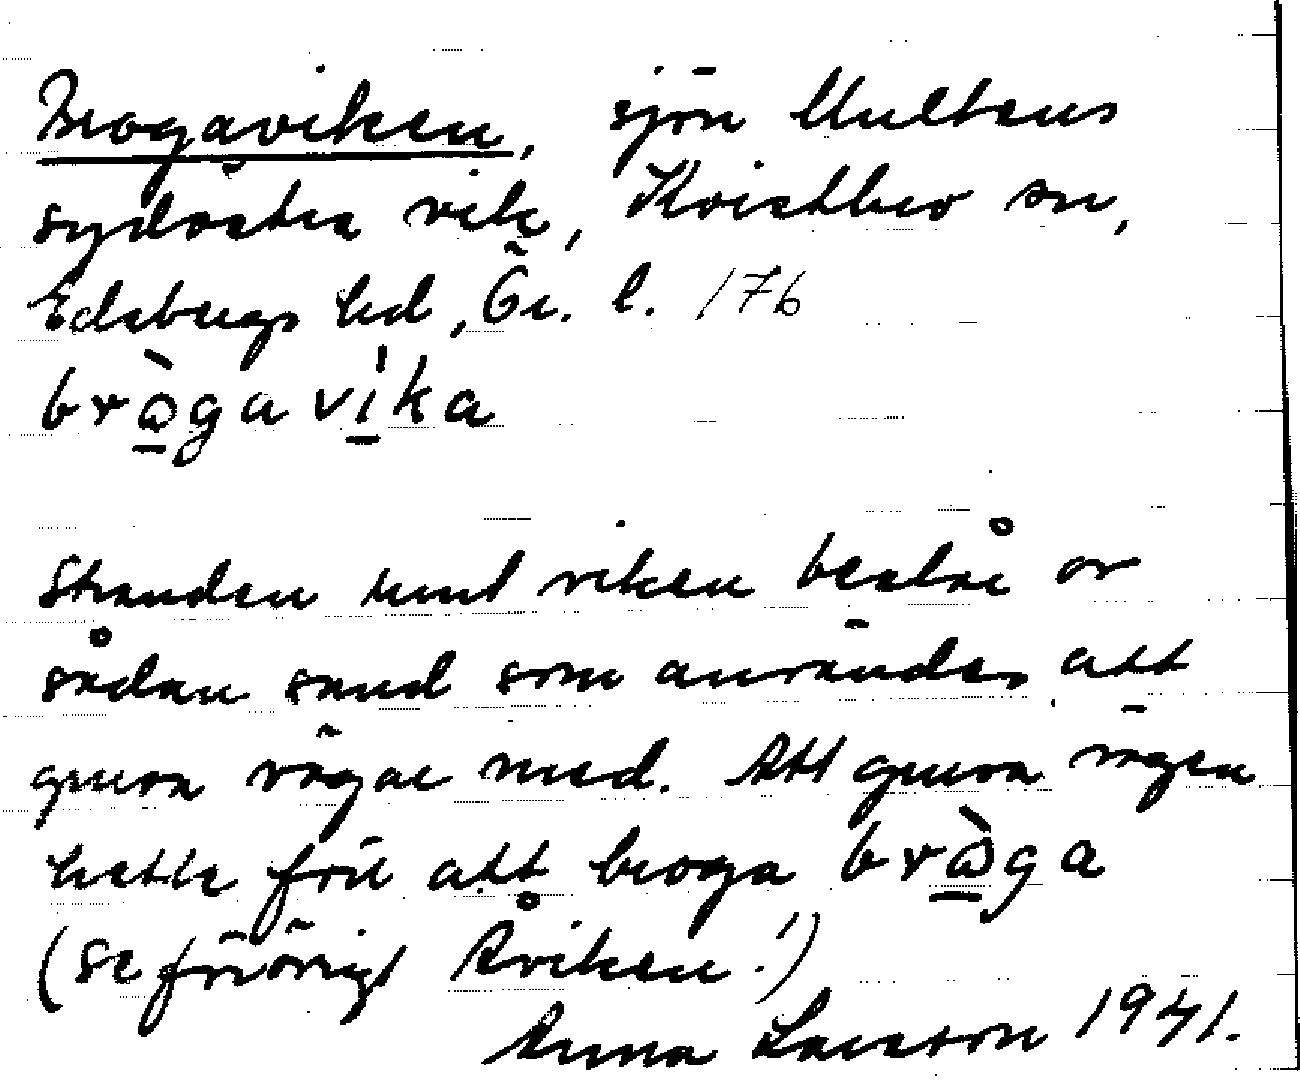 Brogaviken, sjön Multens
sydöstra vik, Kvistbro sn,
Edsbergs hd, Ör. l. 176
brò̱gavi̱ka
Stranden runt viken består av
sådan sand som användes att
gruva vägar med. Att gruva vägen
hette förr att broga brò̱ga
(se för övrigt Åviken!)
Anna Larsson 1941.